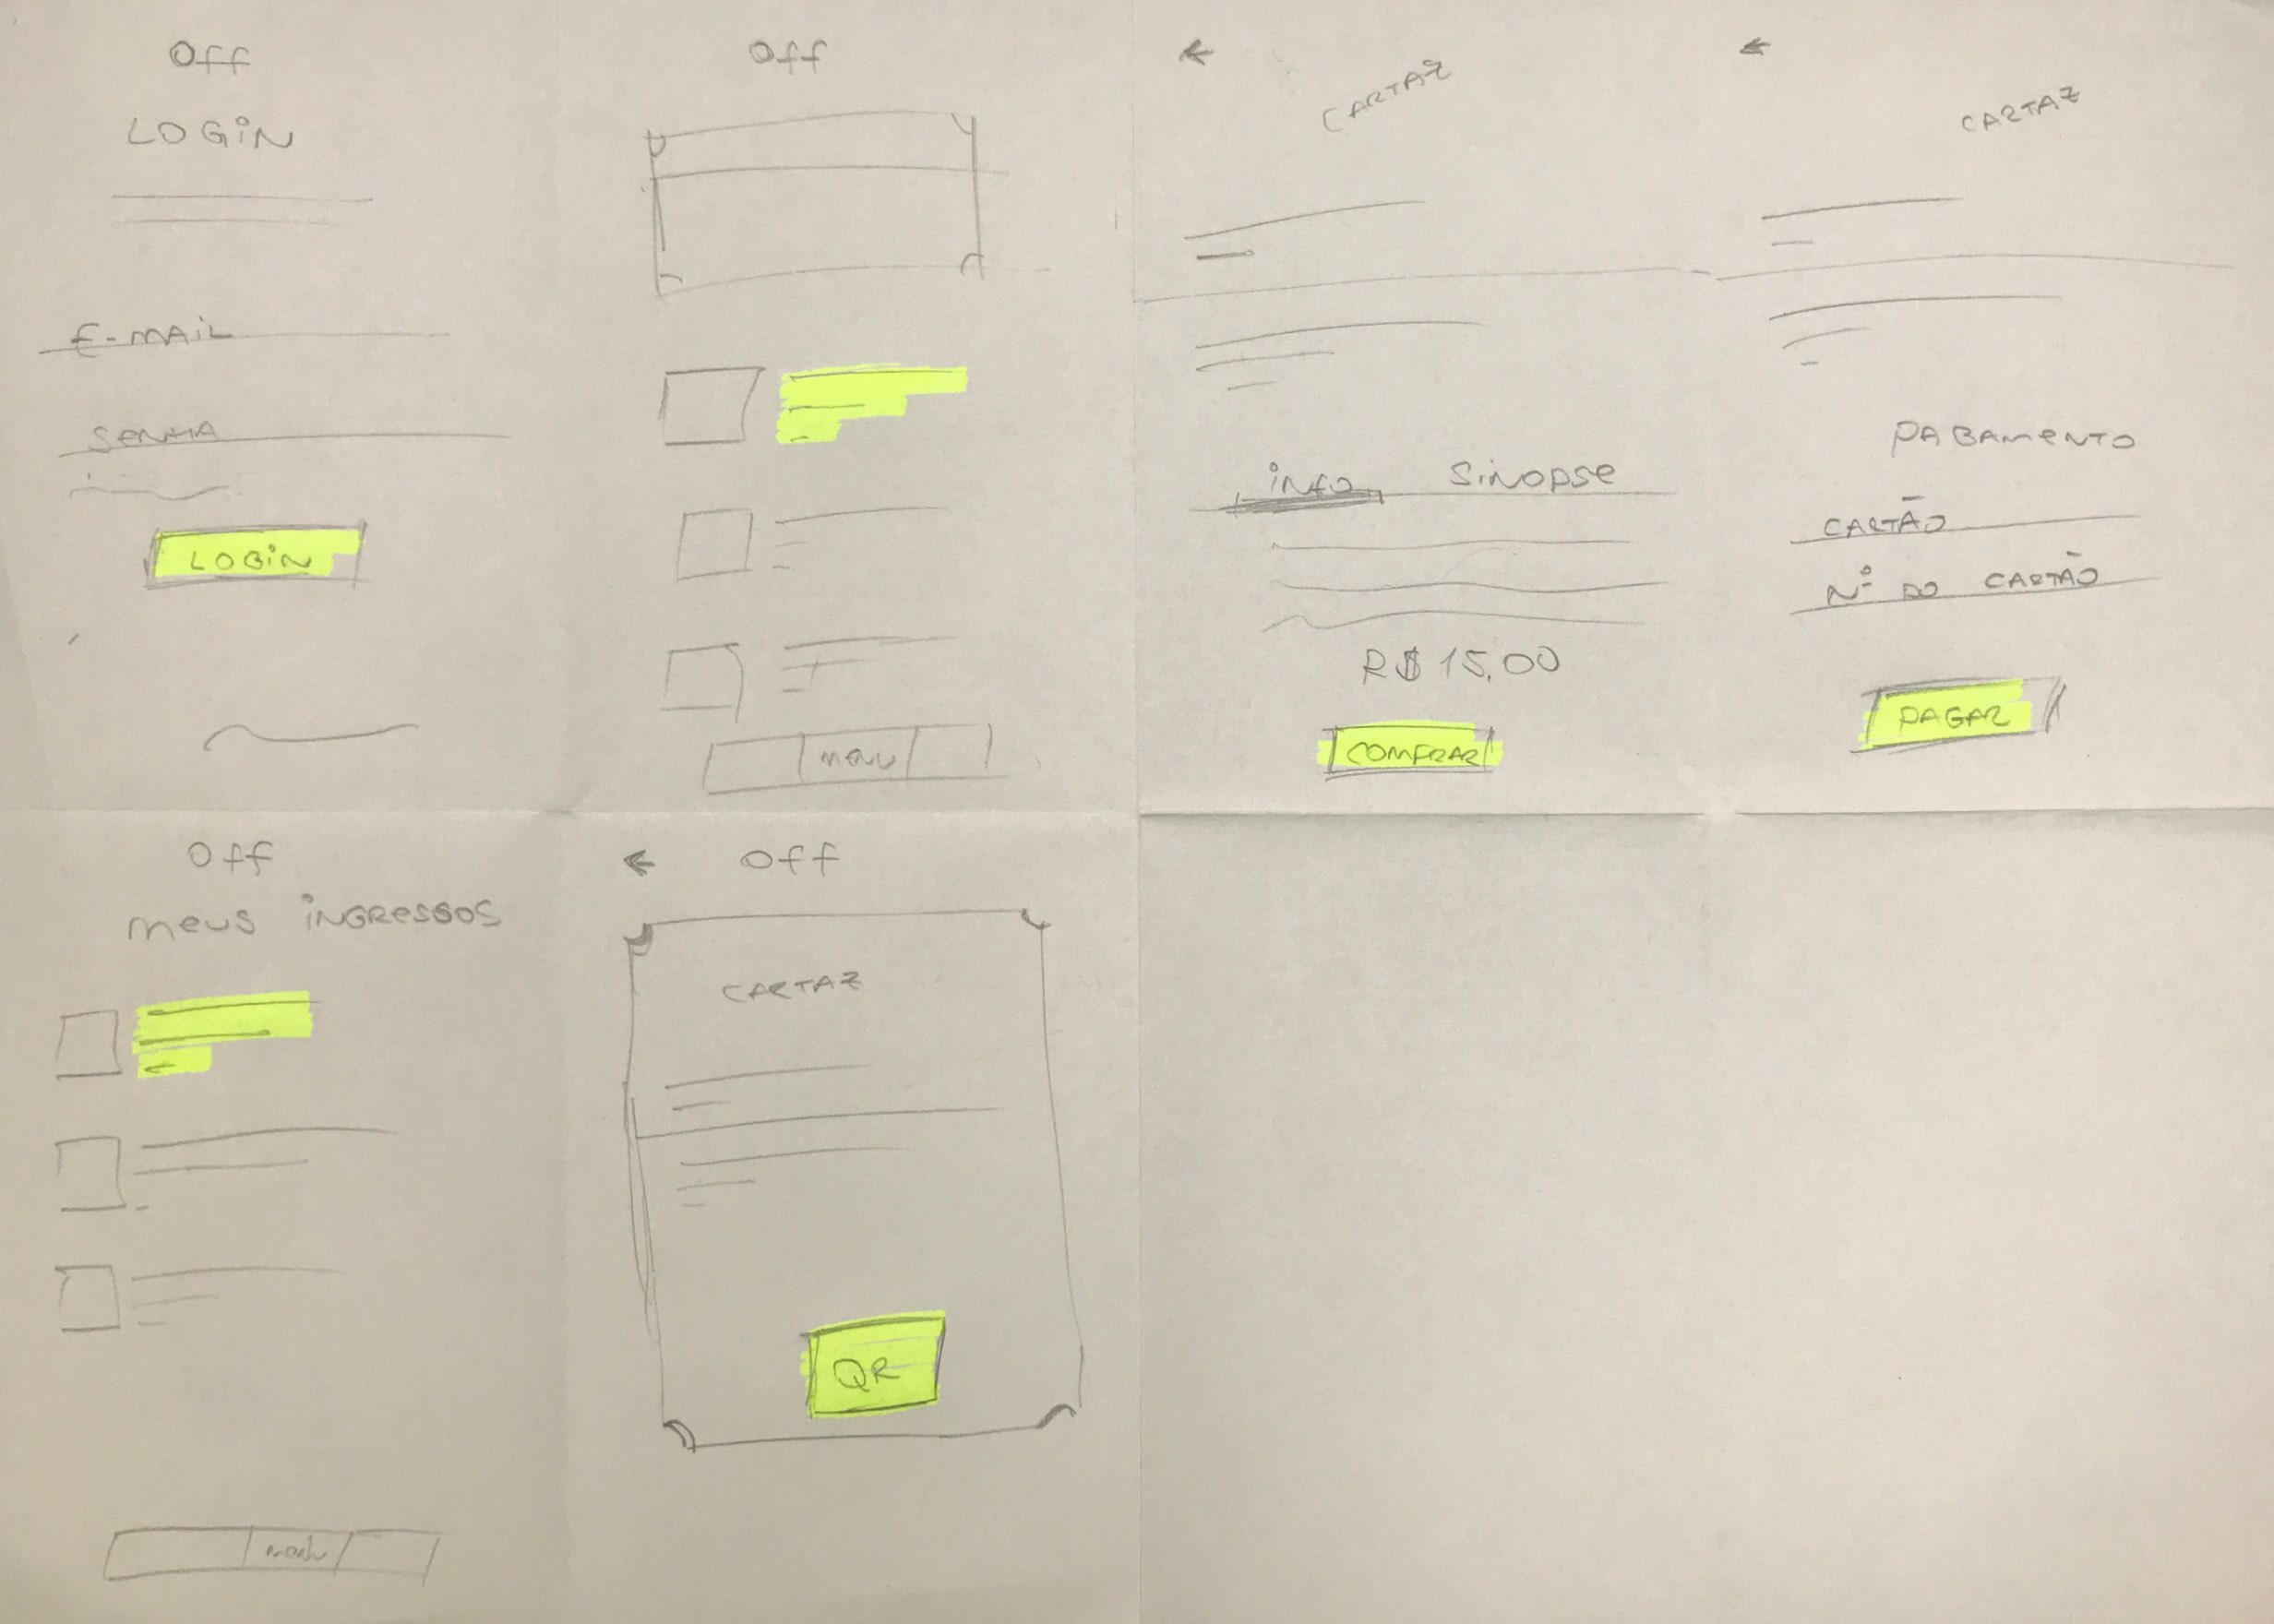 Off
LOGIN
E-MAIL
SENHA
LOGIN
Off
menu
CARTAZ
INFO SINOPSE
R$ 15,00
COMPRAR
CARTAZ
PAGAMENTO
CARTÃO
Nº DO CARTÃO
PAGAR
Off
meus INGRESSOS
menu
Off
CARTAZ
QR